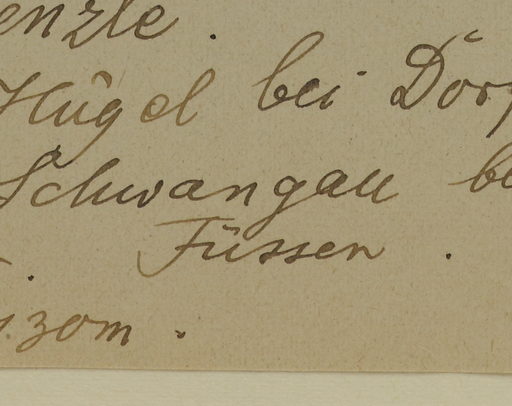 enzle.
Hügel bei Dörf
Schwangau be
Füssen.
izom.